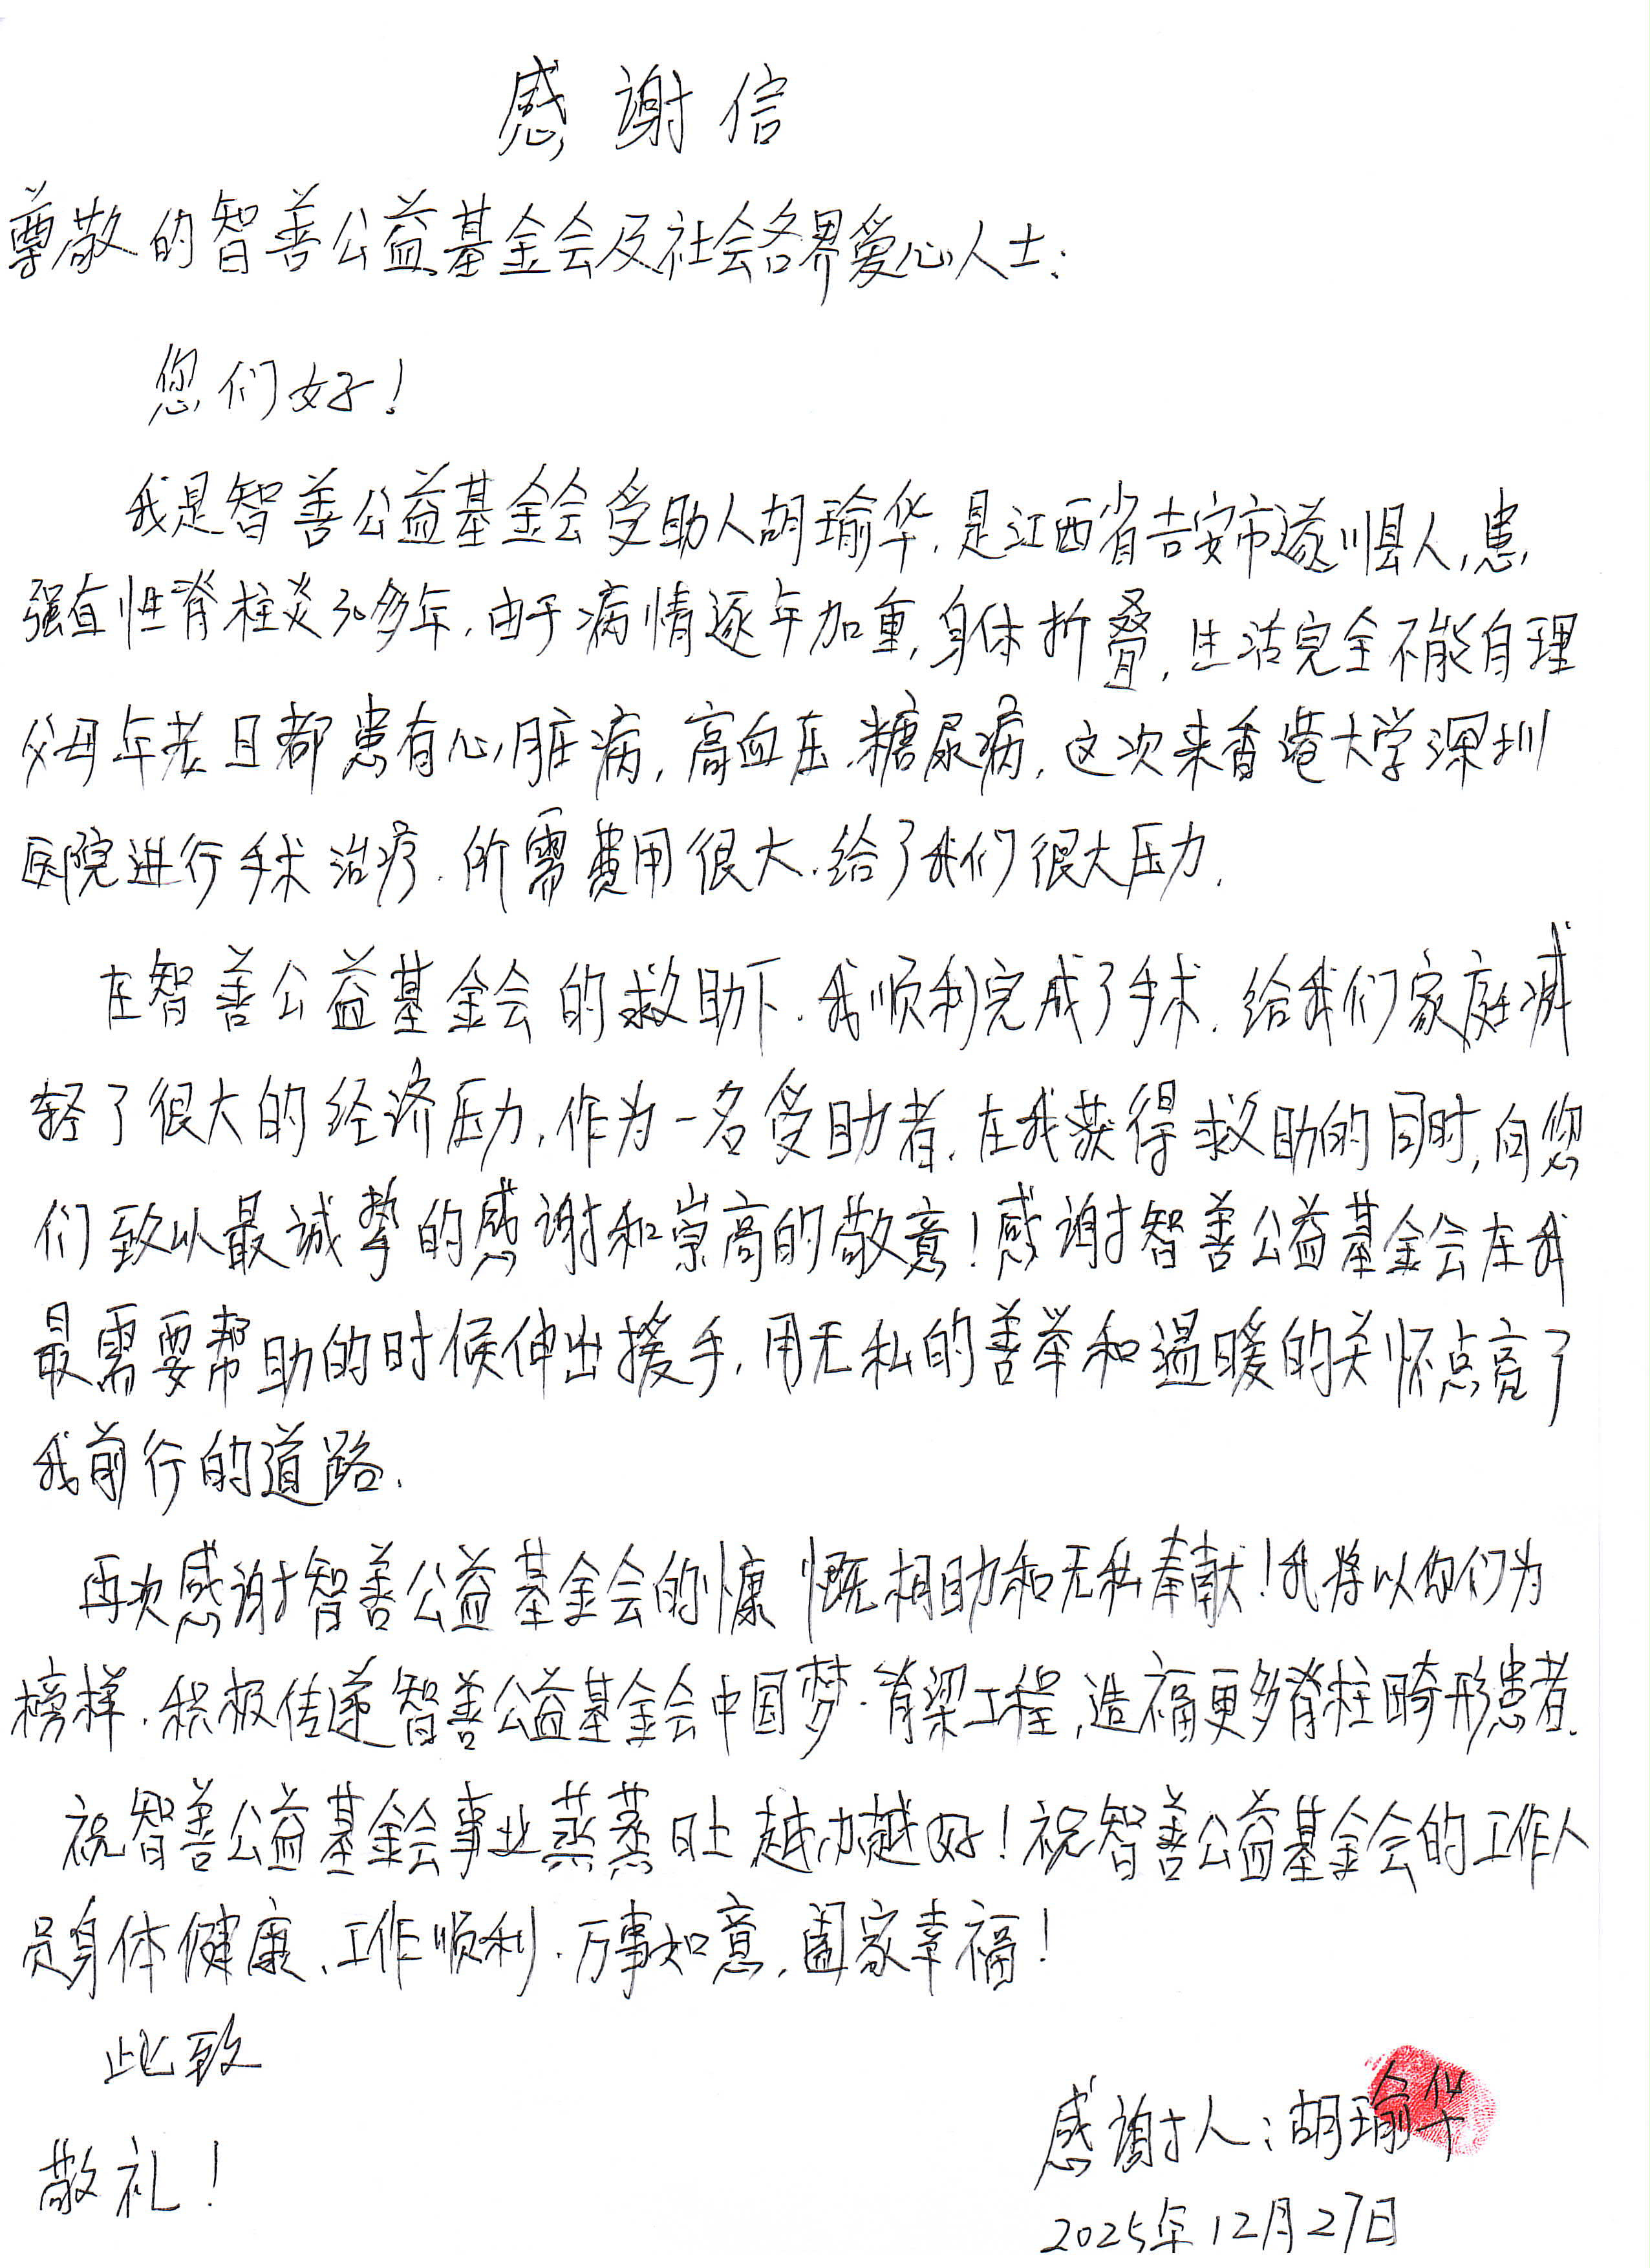 感谢信
尊敬的智善公益基金会及社会各界爱心人士:
您们好!
我是智善公益基金会受助人胡瑜华,是江西省吉安市遂川县人,患
强直性脊柱炎30多年,由于病情逐年加重,身体折叠,生活完全不能自理
父母年老且都患有心脏病,高血压.糖尿病,这次来香港大学深圳
医院进行手术治疗.所需费用很大.给了我们很大压力.
在智善公益基金会的救助下.我顺利完成了手术.给我们家庭减
轻了很大的经济压力,作为一名受助者.在我获得救助的同时,向您
们致以最诚挚的感谢和崇高的敬意!感谢智善公益基金会在我
最需要帮助的时候伸出援手,用无私的善举和温暖的关怀点亮了
我前行的道路.
再次感谢智善公益基金会的慷慨相助和无私奉献!我将以你们为
榜样.积极传递智善公益基金会中国梦·脊梁工程,造福更多脊柱畸形患者.
祝智善公益基金会事业蒸蒸日上越办越好!祝智善公益基金会的工作人
员身体健康、工作顺利.万事如意.阖家幸福!
此致
敬礼!
感谢人:胡瑜华
2025年12月27日